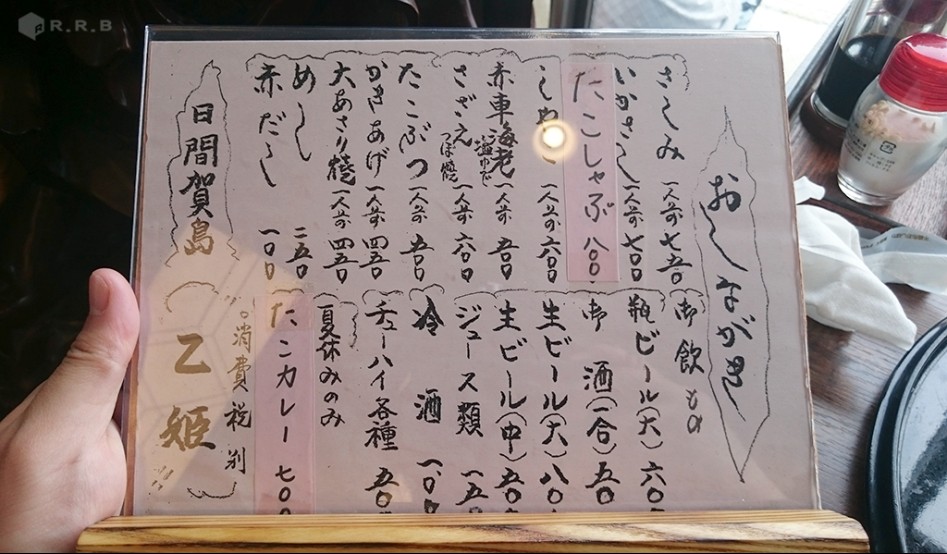 おしながき
さしみ 一人前 七五〇
いかさし 一人前 七〇〇
たこしゃぶ 八〇〇
しゃこ 一人前 六〇〇
赤車海老 塩ゆで 一人前 五〇〇
さざえ つぼ焼 一人前 六〇〇
たこぶつ 一人前 五〇〇
かきあげ 一人前 四五〇
大あさり焼 一人前 四五〇
めし 二五〇
赤だし 一〇〇
御飲もの
瓶ビール(大) 六〇
御酒(一合) 五〇
生ビール(大) 八〇
生ビール(中) 五〇
ジュース類 一五
冷酒
チューハイ各種 五〇
夏休みのみ
たこカレー 七〇〇
○消費税別
日間賀島 乙姫
R.R.B